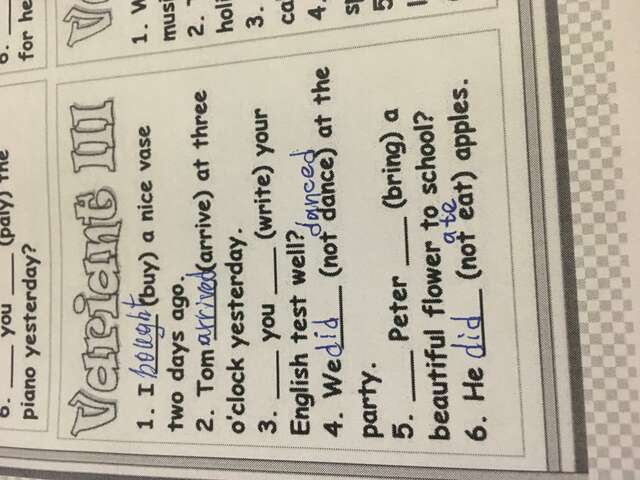 6. ___ you ___ (paly) the
piano yesterday?
6. ___
for he
Variant III
1. I bought (buy) a nice vase
two days ago.
2. Tom arrived (arrive) at three
o'clock yesterday.
3. ___ you ___ (write) your
English test well?
danced
4. We did (not dance) at the
party.
5. ___ Peter ___ (bring) a
beautiful flower to school?
ate
6. He did (not eat) apples.
1. W
musi
2. T
holi
3.
ca
4.
sp
5